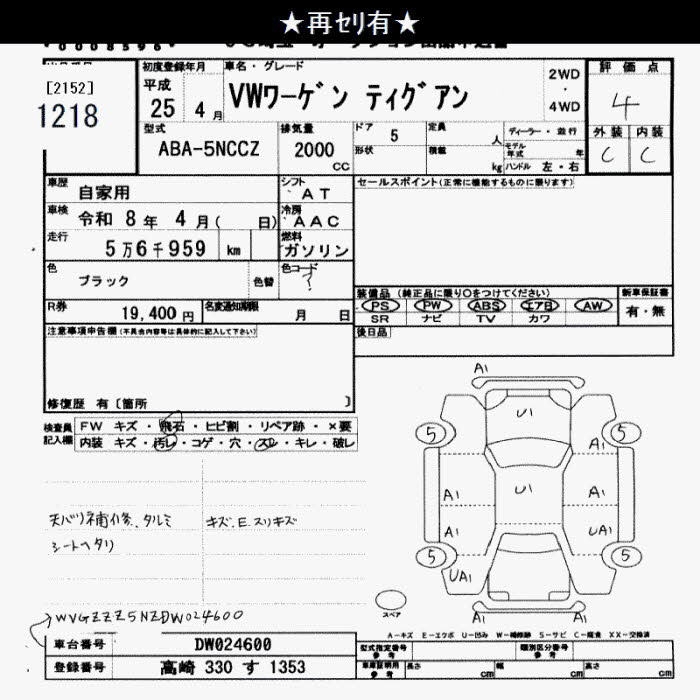 ★再セリ有★
[2152]
1218
初度登録年月
平成
25 4月
車名・グレード
VWワーゲン ティグアン
2WD
・
4WD
評価点
4
外装 内装
C C
型式
ABA-5NCCZ
排気量
2000
CC
ドア 5
定員
人
形状
積載
kg
ディーラー・並行
モデル年式 年
ハンドル 左・右
車歴
自家用
シフト
AT
車検
令和 8年 4月( 日)
冷房
AAC
走行
5万6千959 km
燃料
ガソリン
色
ブラック
色替
色コード
?
R券
19,400 円
名変通知期限
月 日
セールスポイント(正常に機能するものに限ります)
装備品(純正品に限り○をつけてください)
PS PW ABS エアB AW
SR ナビ TV カワ
新車保証書
有・無
後日品
注意事項申告欄(不具合内容等は具体的に記入して下さい)
修復歴 有〔箇所 〕
検査員
記入欄
FW キズ・飛石・ヒビ割・リペア跡・×要
内装 キズ・汚レ・コゲ・穴・スレ・キレ・破レ
天バリ補修、タルミ
シートヘタリ
キズ.E.スリキズ
A1
U1
5 5
A1
A1 U1 A1
A1 UA1
5 5
UA1
A1 A1
スペア
WVGZZZ5NZDW024600
A-キズ E-エクボ U-凹み W-補修跡 S-サビ C-腐食 XX-交換済
車台番号
DW024600
登録番号
高崎 330 す 1353
型式指定番号
参考
類別区分番号
参考
車庫証明用
参考
長さ cm
幅 cm
高さ cm